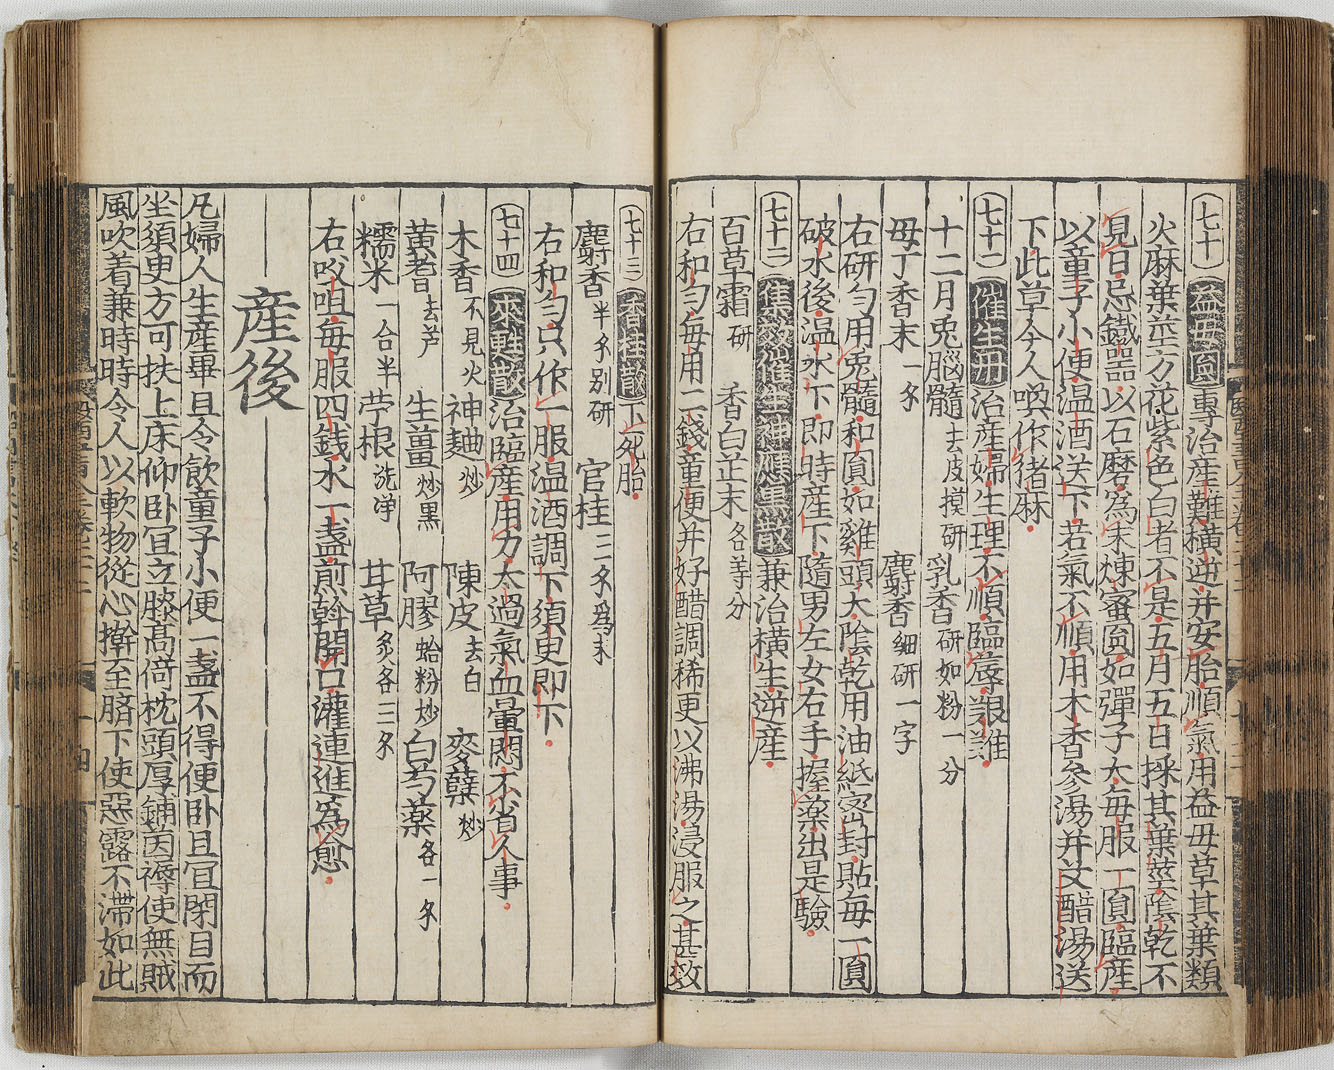 七十 益母圓 專治産難橫逆并安胎順氣用益毋草其葉類
火麻葉莖方花紫色白者不是五月五日採其葉莖陰乾不
見日忌鐵器以石磨爲末煉蜜圓如彈子大每服一圓臨産
以童子小便温酒送下若氣不順用木香參湯并艾醋湯送
下此草今人喚作猪麻
七十一 催生丹 治産婦生理不順臨蓐艱難
十二月兎腦髓 去皮摸研 乳香 研如粉一分
母丁香末 一錢 麝香 細研一字
右研勻用兎髓和圓如雞頭大陰乾用油紙密封貼每一圓
破水後温水下即時産下隨男左女右手握藥出是驗
七十二 集效催生神應黒散 兼治橫生逆産
百草霜 研 香白芷末 各等分
右和勻每用二錢童便并好醋調稀更以沸湯浸服之甚效
七十三 香桂散 下死胎
麝香 半錢别研 官桂 三錢爲末
右和勻只作一服温酒調下須臾即下
七十四 來甦散 治臨産用力太過氣血暈悶不省人事
木香 不見火 神麯 炒 陳皮 去白 麥蘖 炒
黃耆 去芦 生薑 炒黑 阿膠 蛤粉炒 白芍藥 各一錢
糯米 一合半 苧根 洗净 甘草 炙各三錢
右㕮咀每服四錢水一盞煎斡開口灌連進爲愈
産後
凡婦人生産畢且令飮童子小便一盞不得便卧且宜閉目而
坐須臾方可扶上床仰卧宜立膝高倚枕頭厚鋪茵褥使無賊
風吹着兼時時令人以軟物從心擀至臍下使惡露不滯如此